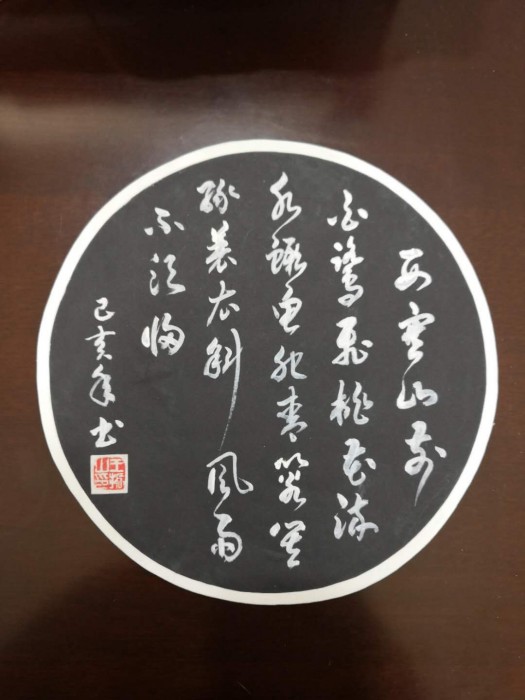 西塞山前
白鹭飞桃花流
水鳜鱼肥青箬笠
绿蓑衣斜风雨
不须归
己亥年书